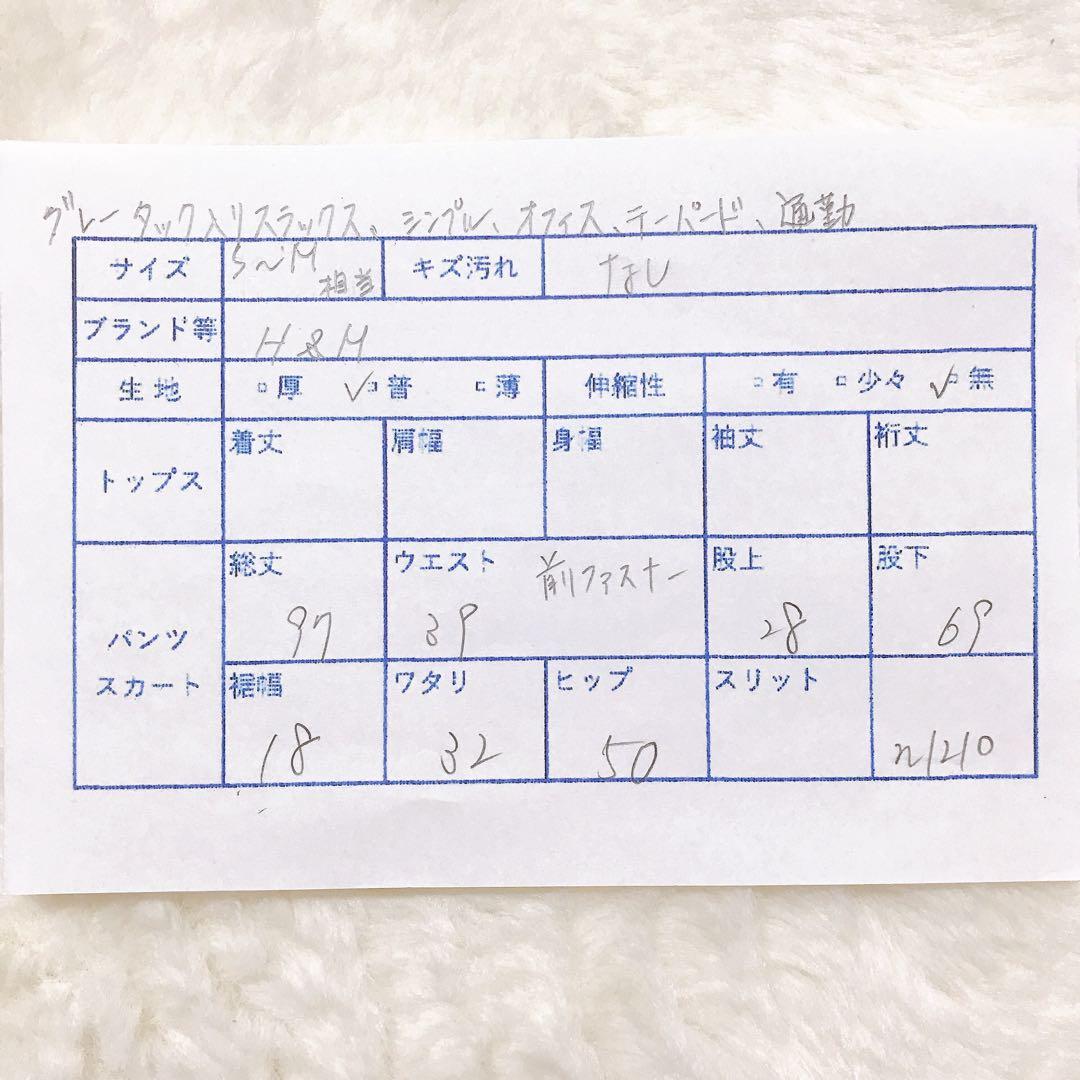 グレー タック入りスラックス、シンプル、オフィス、テーパード、通勤
サイズ S～M相当 キズ汚れ なし
ブランド等 H&M
生地 □厚 ✓□普 □薄 伸縮性 □有 □少々 ✓□無
トップス 着丈 肩幅 身幅 袖丈 裄丈
パンツ スカート
総丈 97 ウエスト 39 前ファスナー 股上 28 股下 69
裾幅 18 ワタリ 32 ヒップ 50 スリット n1210